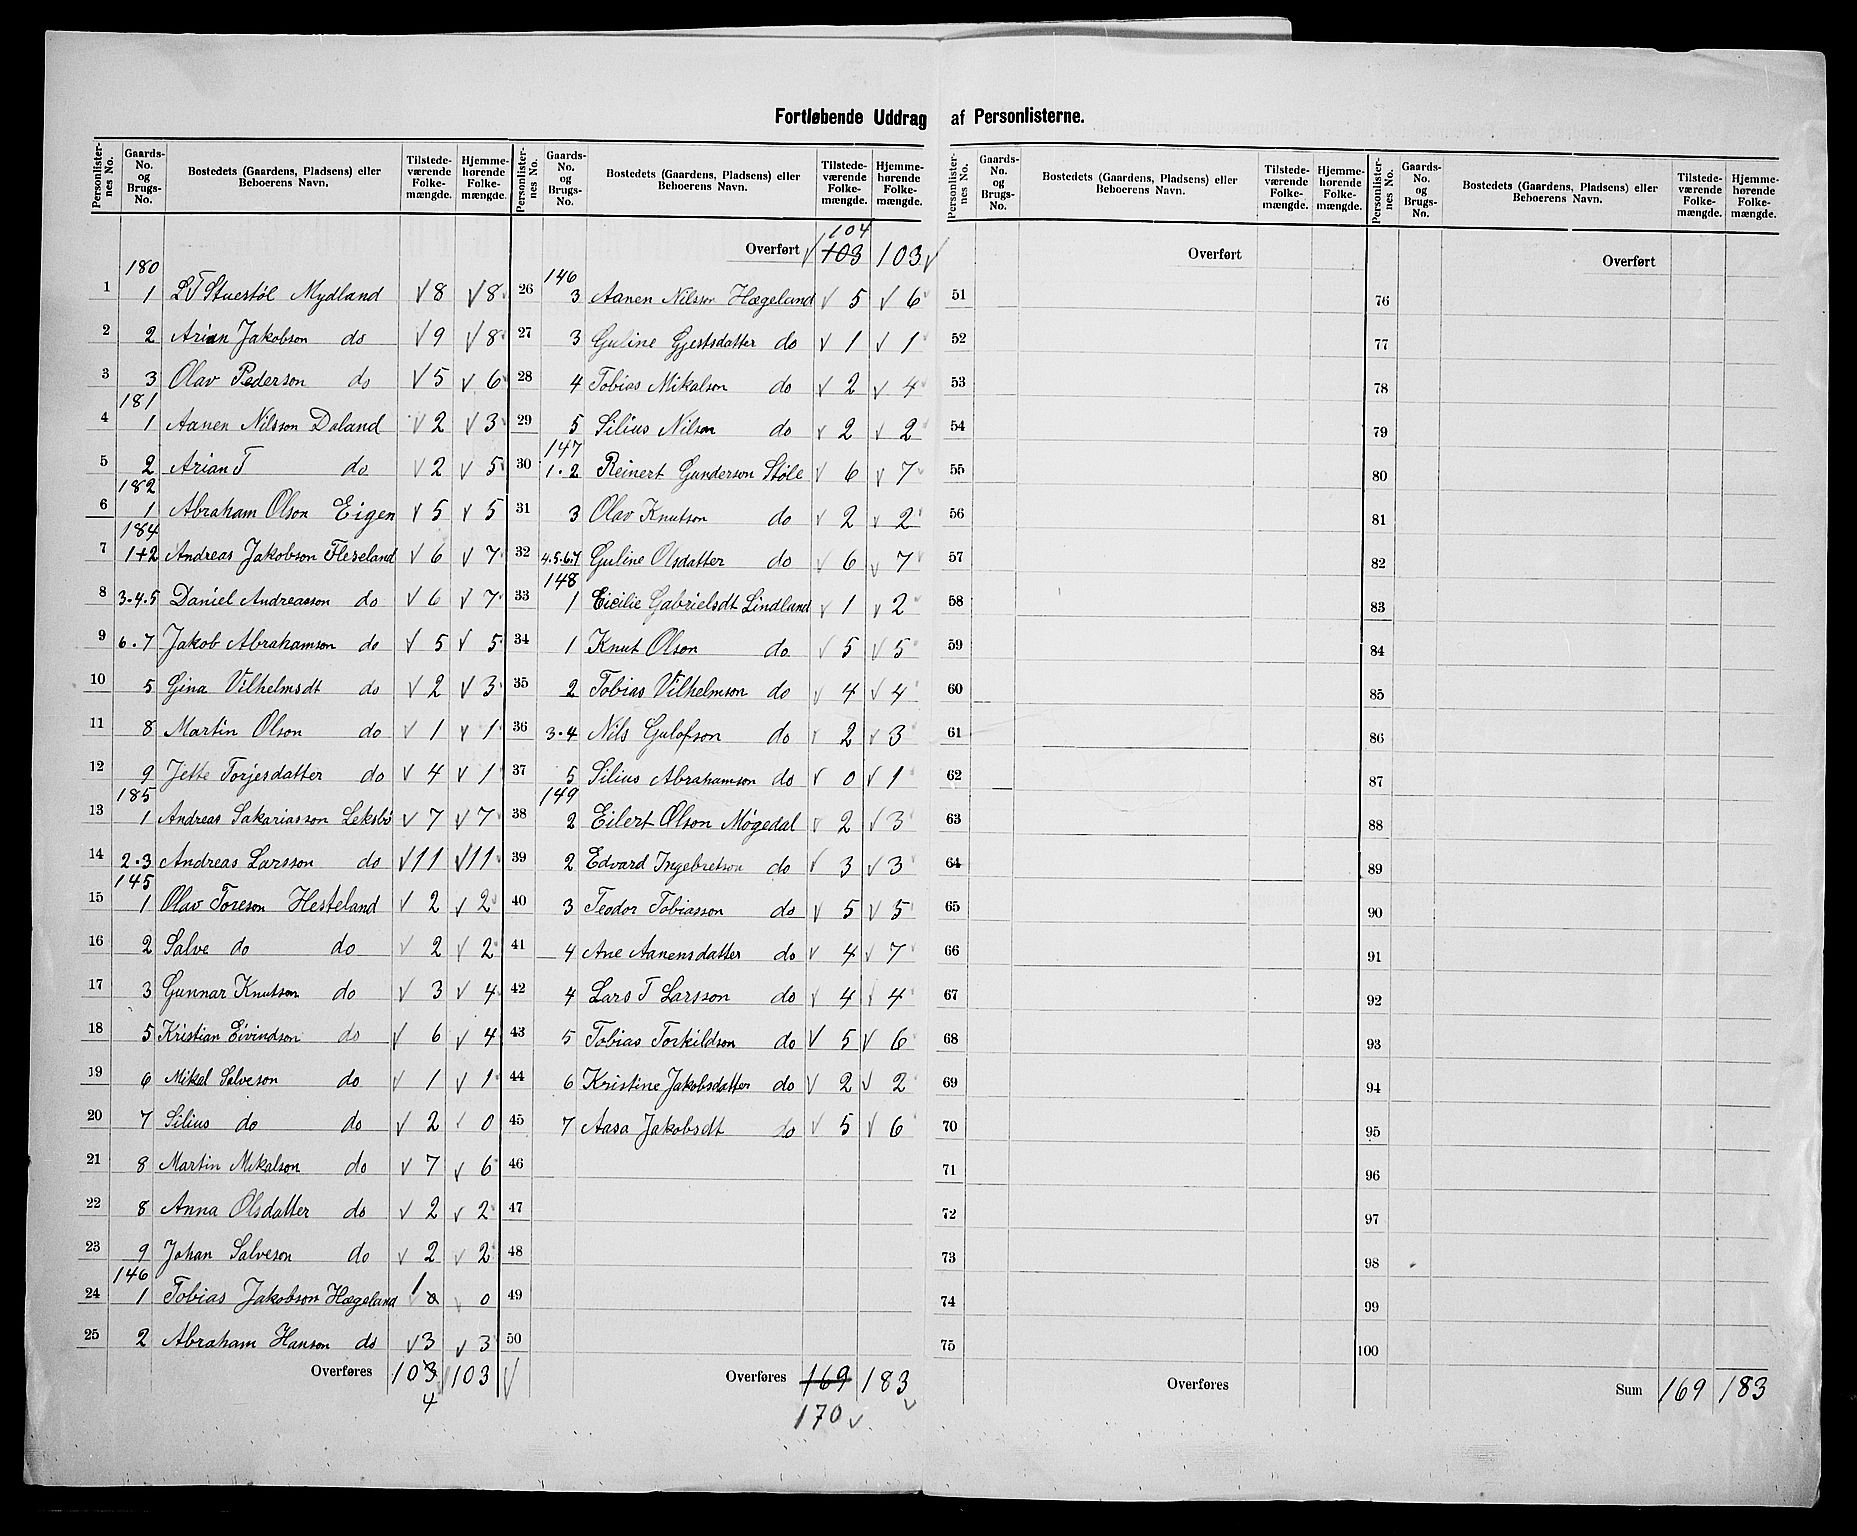 Fortløbende Uddrag af Personlisterne.
Personlister-nes No. Gaards-No. og Brugs-No. Bostedets (Gaardens, Pladsens) eller Beboerens Navn. Tilstede-værende Folke-mængde. Hjemme-hørende Folke-mængde.
180
1 1 LT Stuestøl Mydland √ 8 √ 8
2 2 Arian Jakobson do √ 9 √ 8
3 3 Olav Pederson do √ 5 √ 6
181
4 1 Aanen Nilsson Daland √ 2 √ 3
5 2 Arian T do √ 2 √ 5
182
6 1 Abraham Olson Eigen √ 5 √ 5
184
7 1+2 Andreas Jakobson Fleseland √ 6 √ 7
8 3-4.5 Daniel Andreasson do √ 6 √ 7
9 6.7 Jakob Abrahamson do √ 5 √ 5
10 5 Gina Vilhelmsdt do √ 2 √ 3
11 8 Martin Olson do √ 1 √ 1
12 9 Jette Torjesdatter do √ 4 √ 1
185
13 1 Andreas Sakariasson Leksbø √ 7 √ 7
14 2.3 Andreas Larsson do √ 11 √ 11
145
15 1 Olav Toreson Hesteland √ 2 √ 2
16 2 Salve do do √ 2 √ 2
17 3 Gunnar Knutson do √ 3 √ 4
18 5 Kristian Eivindson do √ 6 √ 4
19 6 Mikal Salveson do √ 1 √ 1
20 7 Silius do do √ 2 √ 0
21 8 Martin Mikalson do √ 7 √ 6
22 8 Anna Olsdatter do √ 2 √ 2
23 9 Johan Salveson do √ 2 √ 2
146
24 1 Tobias Jakobson Hægeland √ 1 0 √ 0
25 2 Abraham Hanson do √ 3 √ 3
Overføres 103 √ 103 √
4
Personlister-nes No. Gaards-No. og Brugs-No. Bostedets (Gaardens, Pladsens) eller Beboerens Navn. Tilstede-værende Folke-mængde. Hjemme-hørende Folke-mængde.
104
Overført √ 103 103 √
146
26 3 Aanen Nilsson Hægeland √ 5 √ 6
27 3 Guline Gjestsdatter do √ 1 √ 1
28 4 Tobias Mikalson do √ 2 √ 4
29 5 Silius Nilson do √ 2 √ 2
147
30 1.2 Reinert Gunderson Støle √ 6 √ 7
31 3 Olav Knutson do √ 2 √ 2
32 4.5.6.7 Guline Olsdatter do √ 6 √ 7
148
33 1 Eicilie Gabrielsdt Lindland √ 1 √ 2
34 1 Knut Olson do √ 5 √ 5
35 2 Tobias Vilhelmson do √ 4 √ 4
36 3-4 Nils Gulofson do √ 2 √ 3
37 5 Silius Abrahamson do √ 0 √ 1
149
38 2 Eilert Olson Møgedal √ 2 √ 3
39 2 Edvard Ingebretson do √ 3 √ 3
40 3 Teodor Tobiasson do √ 5 √ 5
41 4 Ane Aanensdatter do √ 4 √ 7
42 4 Lars T Larsson do √ 4 √ 4
43 5 Tobias Torkildson do √ 5 √ 6
44 6 Kristine Jakobsdatter do √ 2 √ 2
45 7 Aasa Jakobsdt do √ 5 √ 6
46
47
48
49
50
Overføres 169 183 √
170 √
Personlister-nes No. Gaards-No. og Brugs-No. Bostedets (Gaardens, Pladsens) eller Beboerens Navn. Tilstede-værende Folke-mængde. Hjemme-hørende Folke-mængde.
Overført
51
52
53
54
55
56
57
58
59
60
61
62
63
64
65
66
67
68
69
70
71
72
73
74
75
Overføres
Personlister-nes No. Gaards-No. og Brugs-No. Bostedets (Gaardens, Pladsens) eller Beboerens Navn. Tilstede-værende Folke-mængde. Hjemme-hørende Folke-mængde.
Overført
76
77
78
79
80
81
82
83
84
85
86
87
88
89
90
91
92
93
94
95
96
97
98
99
100
Sum 169 183